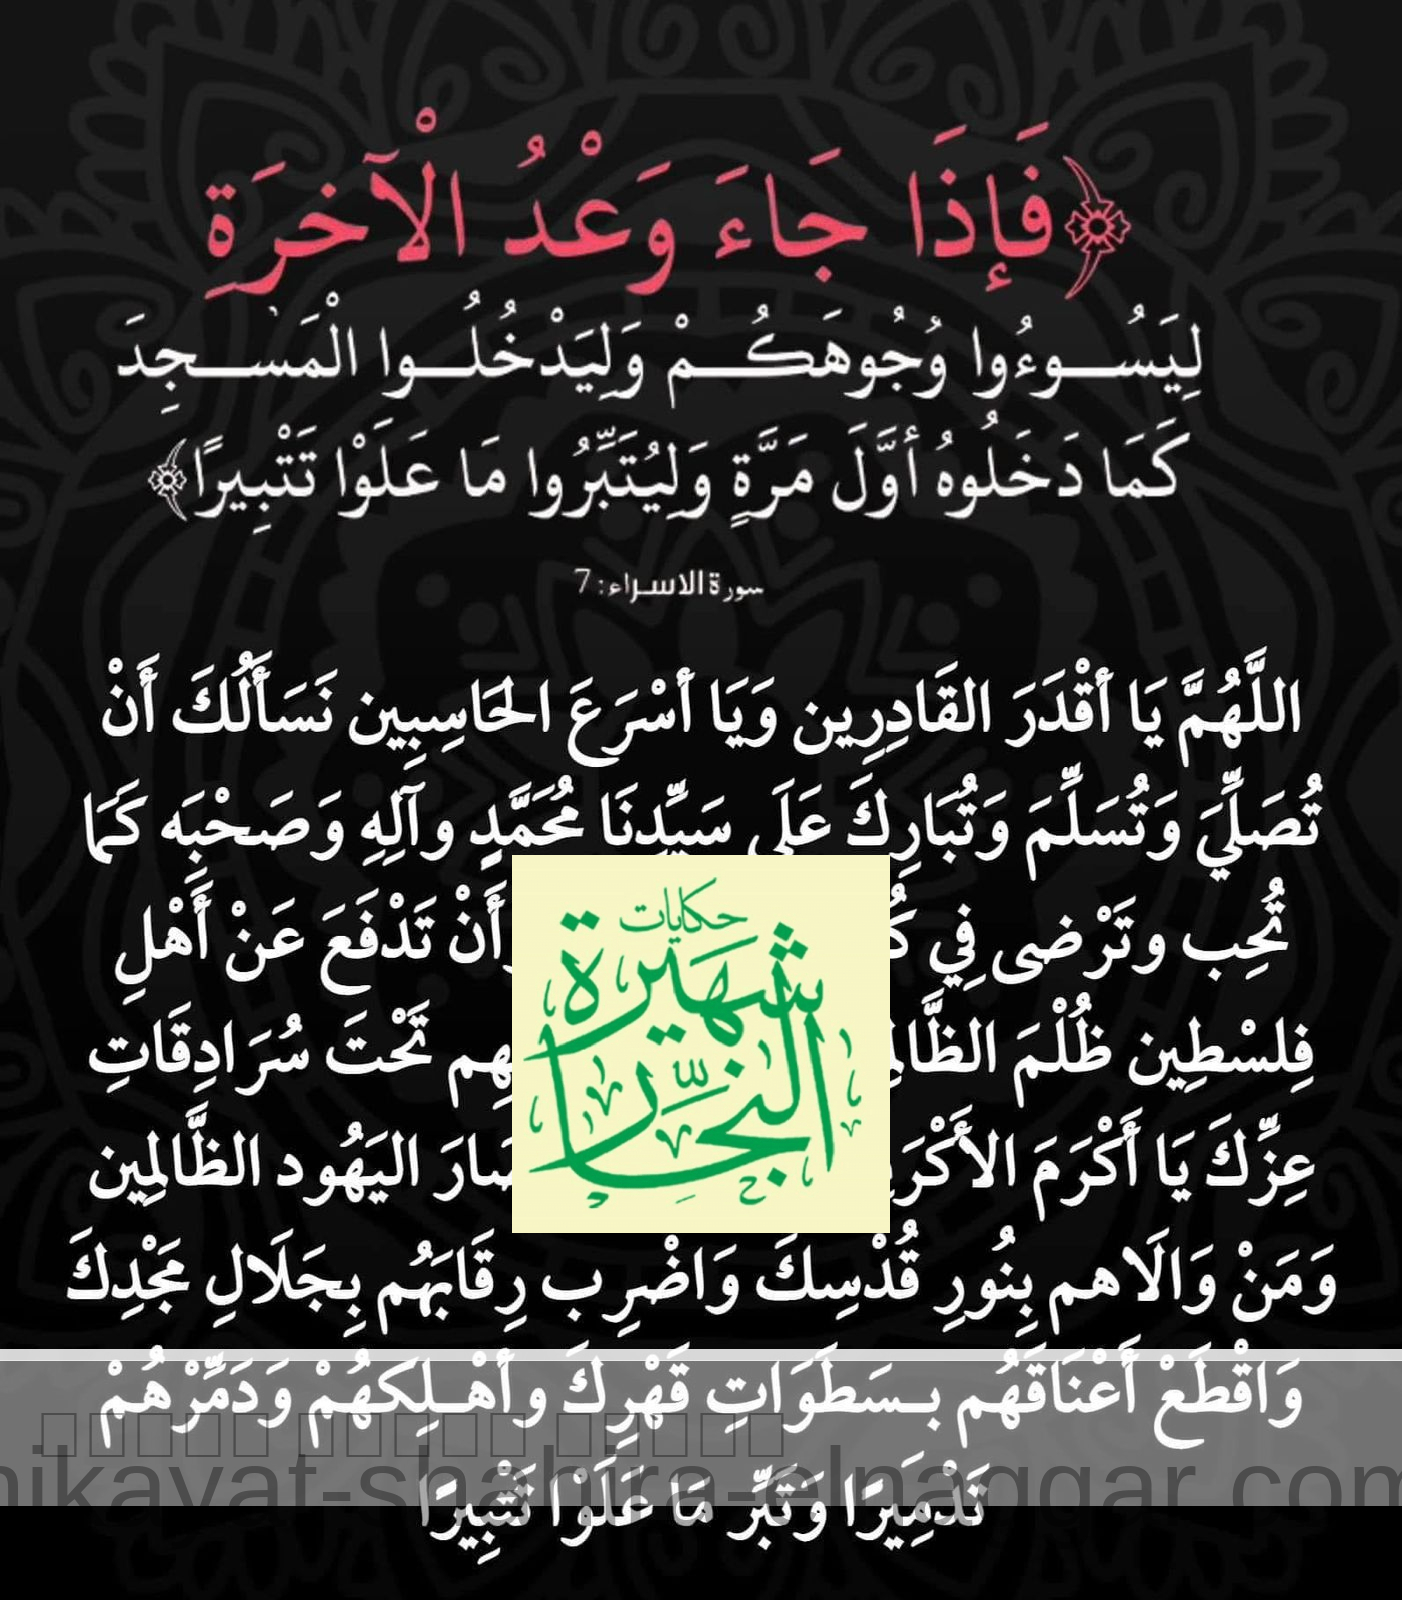 ﴿فَإِذَا جَاءَ وَعْدُ الْآخِرَةِ
لِيَسُوءُوا وُجُوهَكُمْ وَلِيَدْخُلُوا الْمَسْجِدَ
كَمَا دَخَلُوهُ أَوَّلَ مَرَّةٍ وَلِيُتَبِّرُوا مَا عَلَوْا تَتْبِيرًا﴾
سورة الاسراء: 7
اللَّهُمَّ يَا أَقْدَرَ القَادِرِين وَيَا أَسْرَعَ الحَاسِبِين نَسَأَلُكَ أَنْ
تُصَلِّيَ وَتُسَلِّمَ وَتُبَارِكَ عَلَى سَيِّدِنَا مُحَمَّدٍ وآلِهِ وَصَحْبِه كَمَا
تُحِب وتَرْضى فِي أَنْ تَدْفَعَ عَنْ أَهْلِ
فِلسْطِين ظُلْمَ تَحْتَ سُرَادِقَاتِ
عِزِّكَ يَا أَكْرَمَ اليَهُود الظَّالِمِين
وَمَنْ وَالَاهم بِنُورِ قُدْسِكَ وَاضْرِب رِقَابَهُم بِجَلَالِ مَجْدِكَ
وَاقْطَعْ أَعْنَاقَهُم بِسَطَوَاتِ قَهْرِكَ وأَهْلِكَهُمْ وَدَمِّرْهُمْ
تَدْمِيرًا وَتَبِّر مَا عَلَوْا تَتْبِيرًا
حكايات
شهيرة
النجار
hikayat-shahira-elnaggar.com